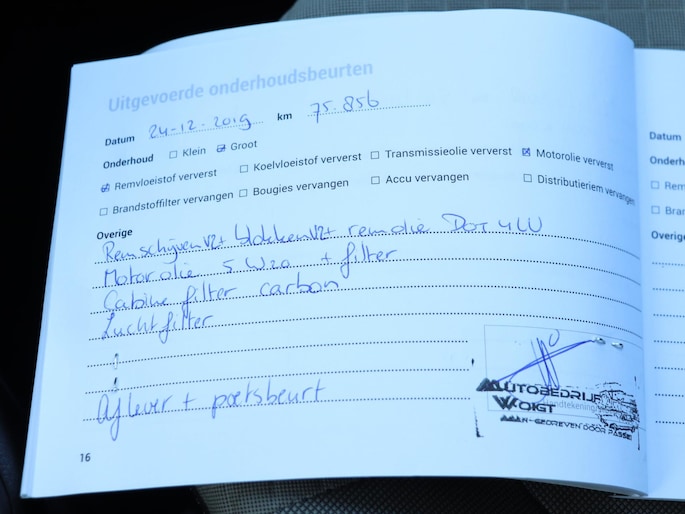 Uitgevoerde onderhoudsbeurten
Datum 24-12-2019 km 75.856
Onderhoud ☐ Klein ☑ Groot
☑ Remvloeistof ververst ☐ Koelvloeistof ververst ☐ Transmissieolie ververst ☒ Motorolie ververst
☐ Brandstoffilter vervangen ☐ Bougies vervangen ☐ Accu vervangen ☐ Distributieriem vervangen
Overige
Remschijven VZ+ blokken VZ+ remolie DOT 4 LV
Motorolie 5W20 + filter
Cabine filter carbon
Luchtfilter
Aflever + poetsbeurt
AUTOBEDRIJF
VOIGT
GEDREVEN DOOR PASSIE
16
Datum
Onderh
☐ Rem
☐ Bran
Overige